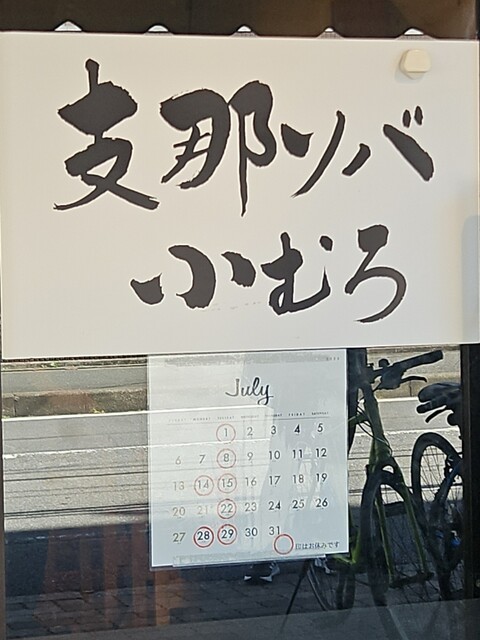 支那ソバ
小むろ
July
1 2 3 4 5
6 7 8 9 10 11 12
13 14 15 16 17 18 19
20 21 22 23 24 25 26
27 28 29 30 31
印はお休みです